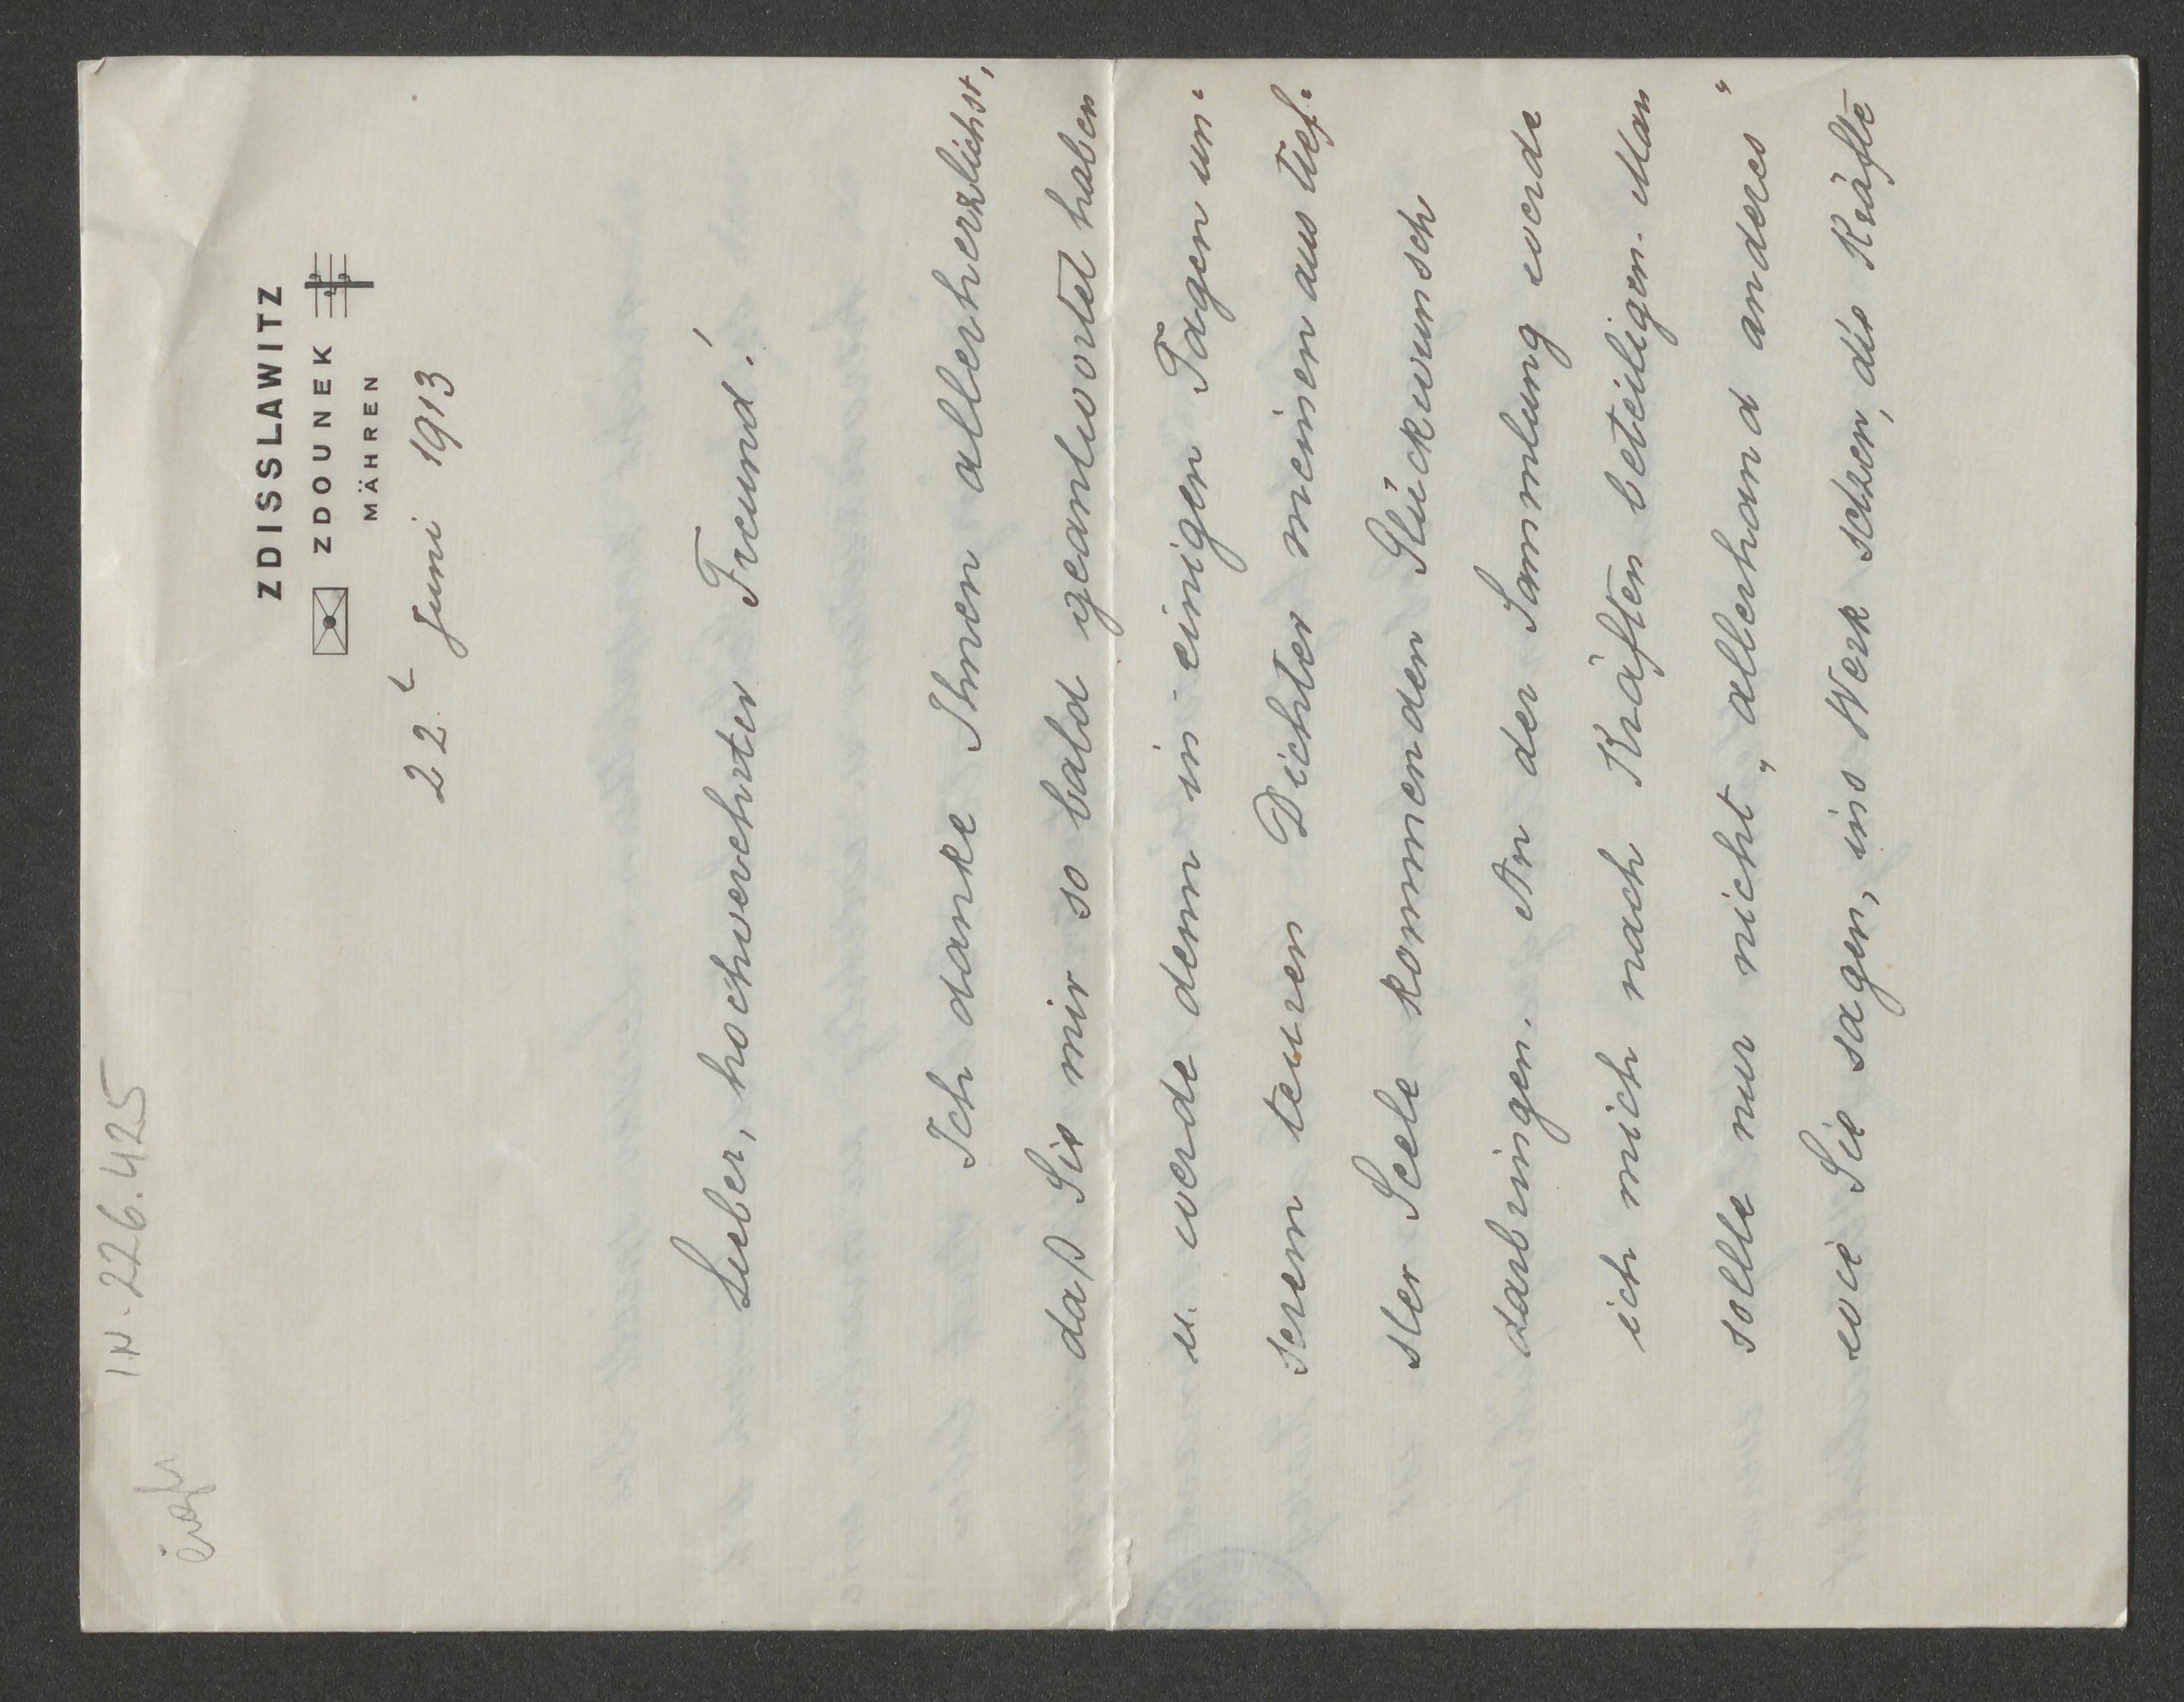 I.N. 226.425
ZDISSLAWITZ
ZDOUNEK
MÄHREN
22t Juni 1913
Lieber, hochverehrter Freund!
Ich danke Ihnen allerherzlichst,
daß Sie mir so bald geantwortet haben
u. werde denn in einigen Tagen un-
serem teuren Dichter meinen aus tief-
ster Seele kommenden Glückwunsch
darbringen. An der Sammlung werde
ich mich nach Kräften beteiligen. Man
sollte nur nicht „allerhand anderes“
wie Sie sagen, ins Werk setzen, die Kräfte